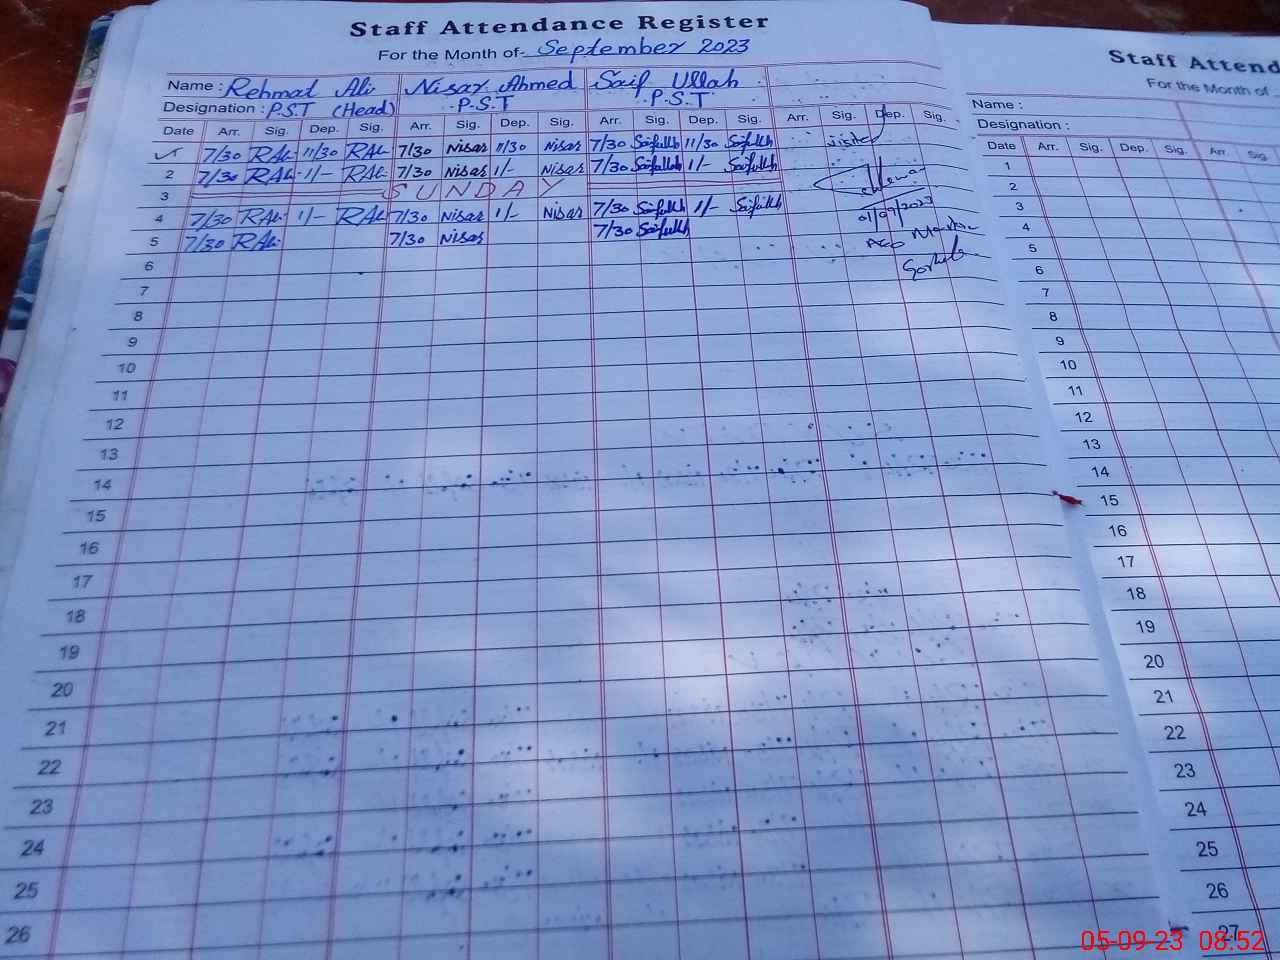 Staff Attendance Register
For the Month of- September 2023
Name : Rehmat Ali Nisar Ahmed Saif Ullah
Designation : P.S.T (Head) P.S.T P.S.T
Date Arr. Sig. Dep. Sig. Arr. Sig. Dep. Sig. Arr. Sig. Dep. Sig. Arr. Sig. Dep. Sig.
7/30 RAli 11/30 RAli 7/30 Nisar 11/30 Nisar 7/30 Saifullh 11/30 Saifullh visited
2 7/30 RAli 1/- RAli 7/30 Nisar 1/- Nisar 7/30 Saifullh 1/- Saifullh
3 SUNDAY
4 7/30 RAli 1/- RAli 7/30 Nisar 1/- Nisar 7/30 Saifullh 1/- Saifullh 01/09/2023
5 7/30 RAli 7/30 Nisar 7/30 Saifullh
6
7
8
9
10
11
12
13
14
15
16
17
18
19
20
21
22
23
24
25
26
Staff Attend
For the Month of
Name :
Designation :
Date Arr. Sig. Dep. Sig. Arr. Sig.
1
2
3
4
5
6
7
8
9
10
11
12
13
14
15
16
17
18
19
20
21
22
23
24
25
26
27
05-09-23 08:52